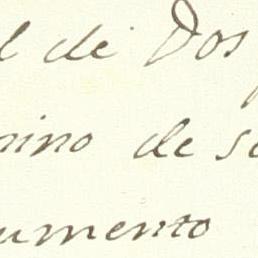 l de Dos
nino de se
umento